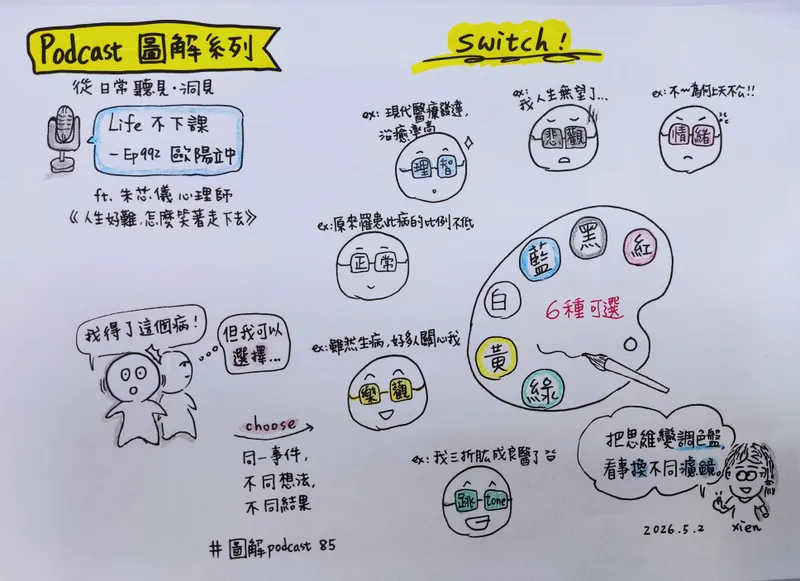 Podcast 圖解系列
從日常聽見·洞見
Life 不下課
- Ep992 歐陽立中
ft. 朱芯儀心理師
《人生好難,怎麼笑著走下去》
我得了這個病!
但我可以
選擇...
choose
同一事件,
不同想法,
不同結果
#圖解podcast 85
switch!
ex: 現代醫療發達,
治癒率高
理智
ex:
我人生無望了...
悲觀
ex: 不~為何上天不公!!
情緒
ex:原來罹患此病的比例不低
正常
ex: 雖然生病,好多人關心我
樂觀
ex: 我三折肱成良醫了
跳tone
紅
黑
藍
白
黃
綠
6種可選
把思維變調色盤,
看事換不同濾鏡。
2026.5.2
xien